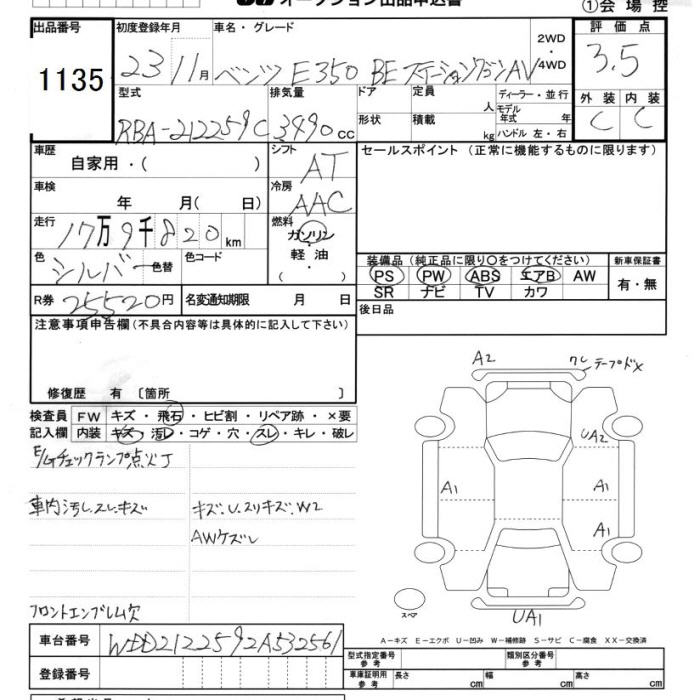 オークション出品申込書
①会場控
出品番号 初度登録年月 車名・グレード 評価点
1135 23 11月 ベンツ E350 BE ステーションワゴン AV 2WD・4WD 3.5
型式 排気量 ドア 定員 人 ディーラー・並行 外装 内装
RBA-212259C 3490cc 形状 積載 kg モデル年式 年 ハンドル 左・右 C C
車歴 シフト セールスポイント (正常に機能するものに限ります)
自家用・( ) AT
車検 冷房
年 月( 日) AAC
走行 燃料
17万9千820km ガソリン
色 色コード 軽油 装備品 (純正品に限り○をつけてください) 新車保証書
シルバー 色替 ・ PS PW ABS エアB AW 有・無
SR ナビ TV カワ
R券 25520円 名変通知期限 月 日 後日品
注意事項申告欄(不具合内容等は具体的に記入して下さい)
修復歴 有 〔箇所 〕
検査員 FW キズ・飛石・ヒビ割・リペア跡・×要
記入欄 内装 キズ・汚レ・コゲ・穴・スレ・キレ・破レ
E/Gチェックランプ点灯
車内汚レ.スレ.キズ キズ.U.スリキズ.W2
AWケズレ
フロントエンブレム欠
A2 ワレ テープドメ
UA2
A1 A1
A1
スペア UA1
A－キズ E－エクボ U－凹み W－補修跡 S－サビ C－腐食 XX－交換済
車台番号 WDD2122592A532561
型式指定番号 参考 類別区分番号 参考
登録番号 車庫証明用 参考 長さ cm 幅 cm 高さ cm